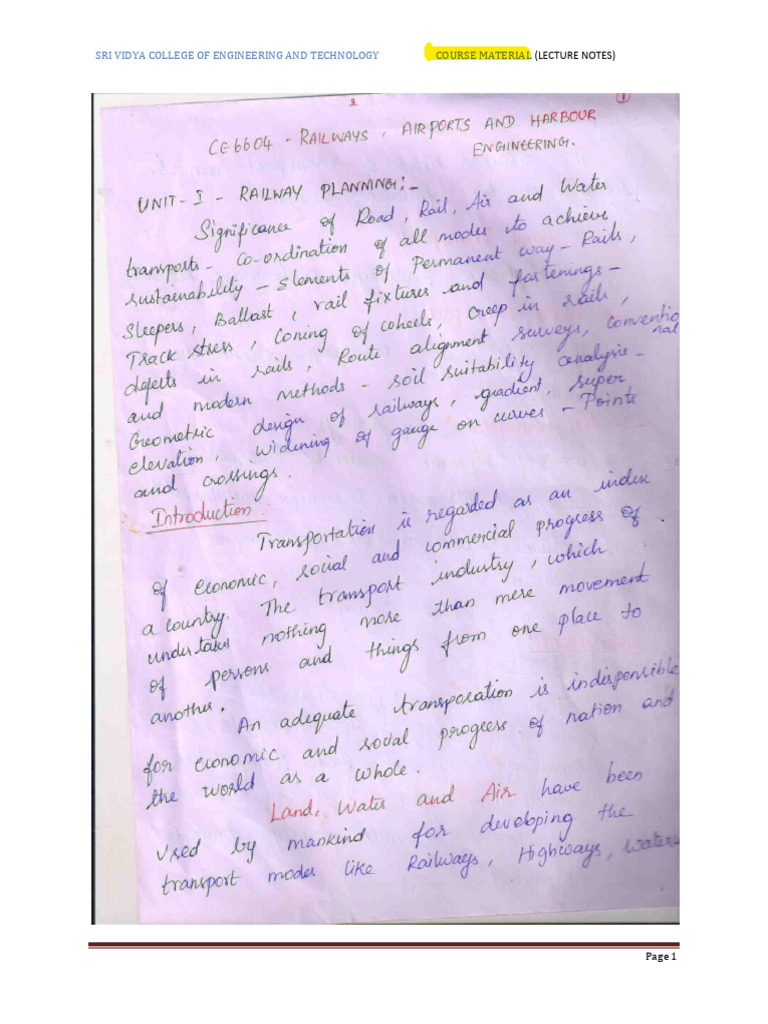 SRI VIDYA COLLEGE OF ENGINEERING AND TECHNOLOGY COURSE MATERIAL (LECTURE NOTES)
1
CE6604 - RAILWAYS, AIRPORTS AND HARBOUR
ENGINEERING.
UNIT-I - RAILWAY PLANNING:-
Significance of Road, Rail, Air and Water
transports - Co-ordination of all modes to achieve
sustainability - Elements of Permanent way - Rails,
Sleepers, Ballast, rail fixtures and fastenings -
Track stress, Coning of wheels, creep in rails,
defects in rails, Route alignment surveys, conventional
and modern methods - soil suitability analysis -
Geometric design of railways, gradient, super
elevation, widening of gauge on curves - Points
and crossings.
Introduction
Transportation is regarded as an index
of economic, social and commercial progress of
a country. The transport industry, which
undertakes nothing more than mere movement
of persons and things from one place to
another.
An adequate transporation is indispensible
for economic and social progress of nation and
the world as a whole.
Land, Water and Air have been
used by mankind for developing the
transport modes like Railways, Highways,
Page 1